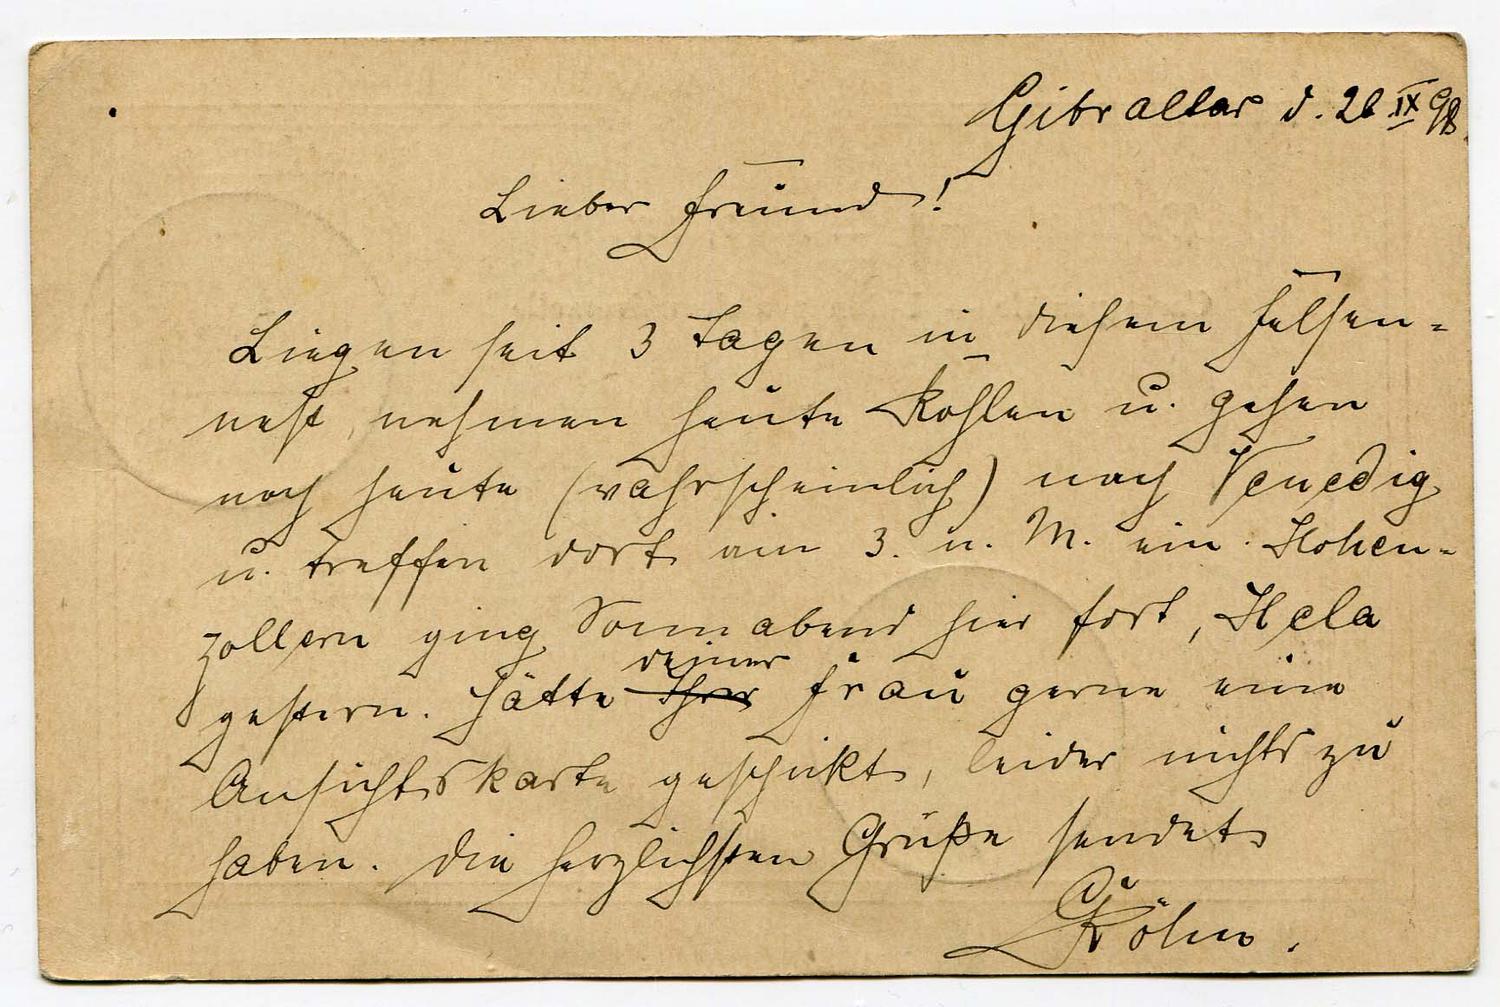 Gibraltar d. 26 IX 98
Lieber Freund!
Liegen seit 3 Tagen in diesem Felsen=
nest, nehmen heute Kohlen u. gehen
noch heute (wahrscheinlich) nach Venedig
u. treffen dort am 3. n. M. ein. Hohen=
zollern ging Sonnabend hier fort, Hela
deiner
gestern. Hätte Ihrer Frau gerne eine
Ansichtskarte geschickt, leider nichts zu
haben. Die herzlichsten Grüße sendet
Röhm.